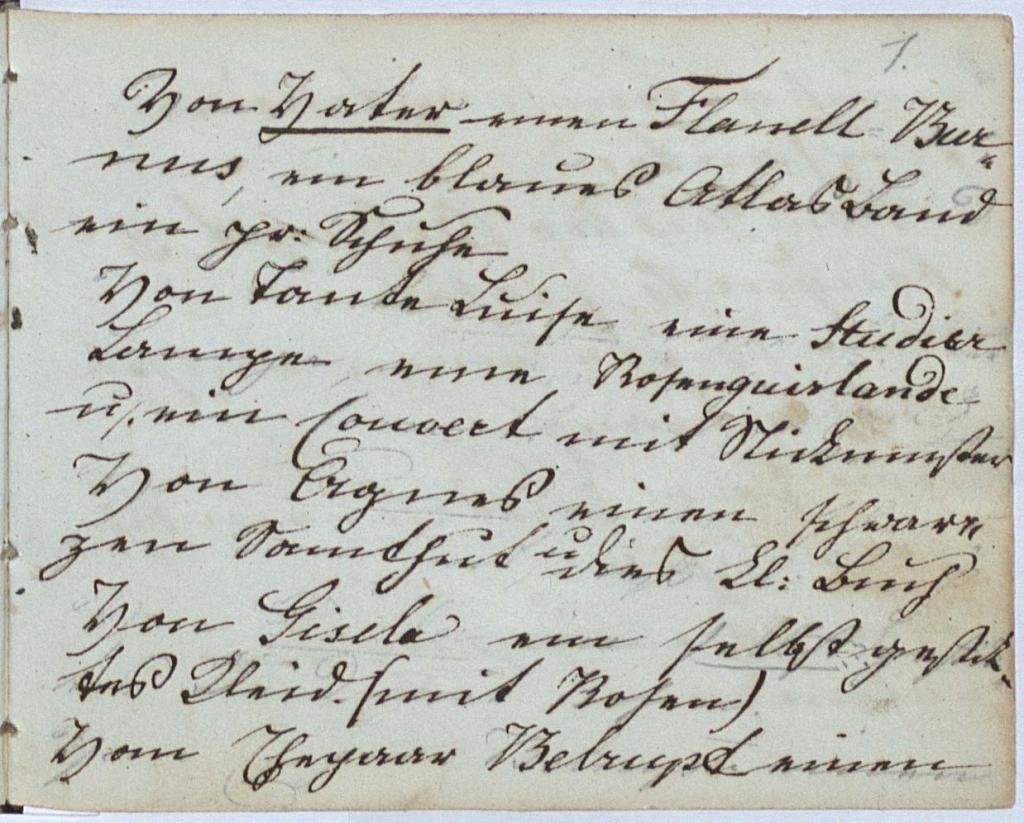 1.
Von Vater einen Flanell Bur-
nus, ein blaues Atlas Band
ein pr: Schuhe
Von Tante Luise eine Studier
Lampe eine Rosenguirlande
u, ein Couvert mit Stickmuster
Von Agnes einen schwar=
zen Samthut u dies kl: Buch
Von Gisela ein selbst gestik-
tes Kleid. (mit Rosen)
Vom Ehepaar Belrupt einen